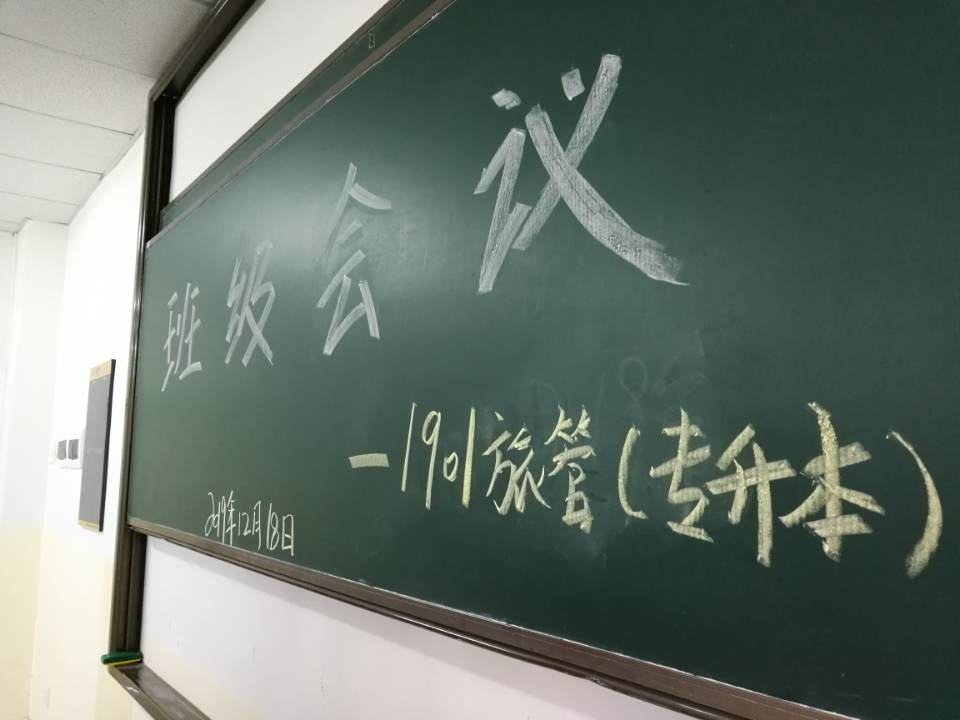 班级会议
—1901旅管(专升本)
2019年12月18日